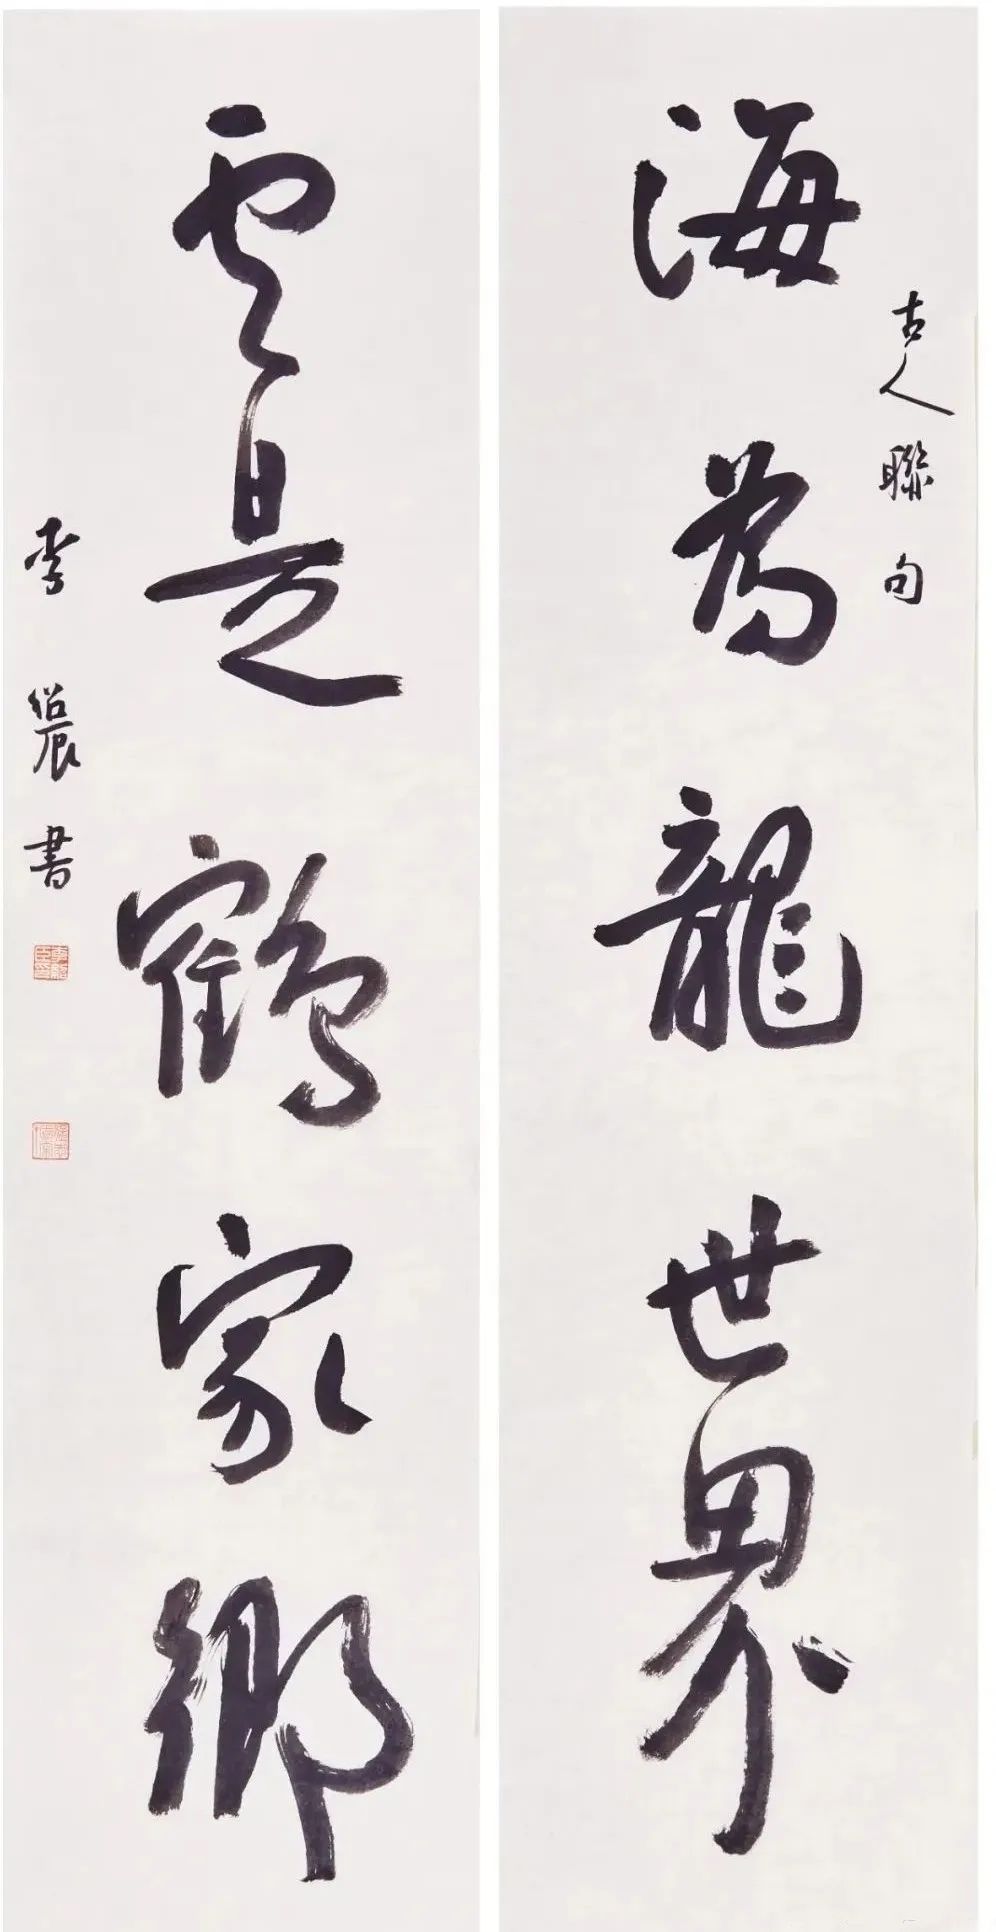 古人聯句
海為龍世界
雲是鶴家鄉
李 書